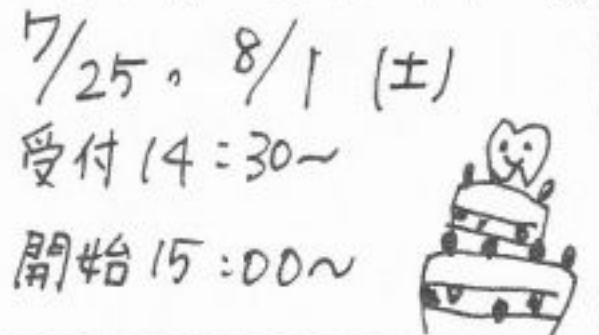 7/25。8/1 (土)
受付 14:30〜
開始 15:00〜